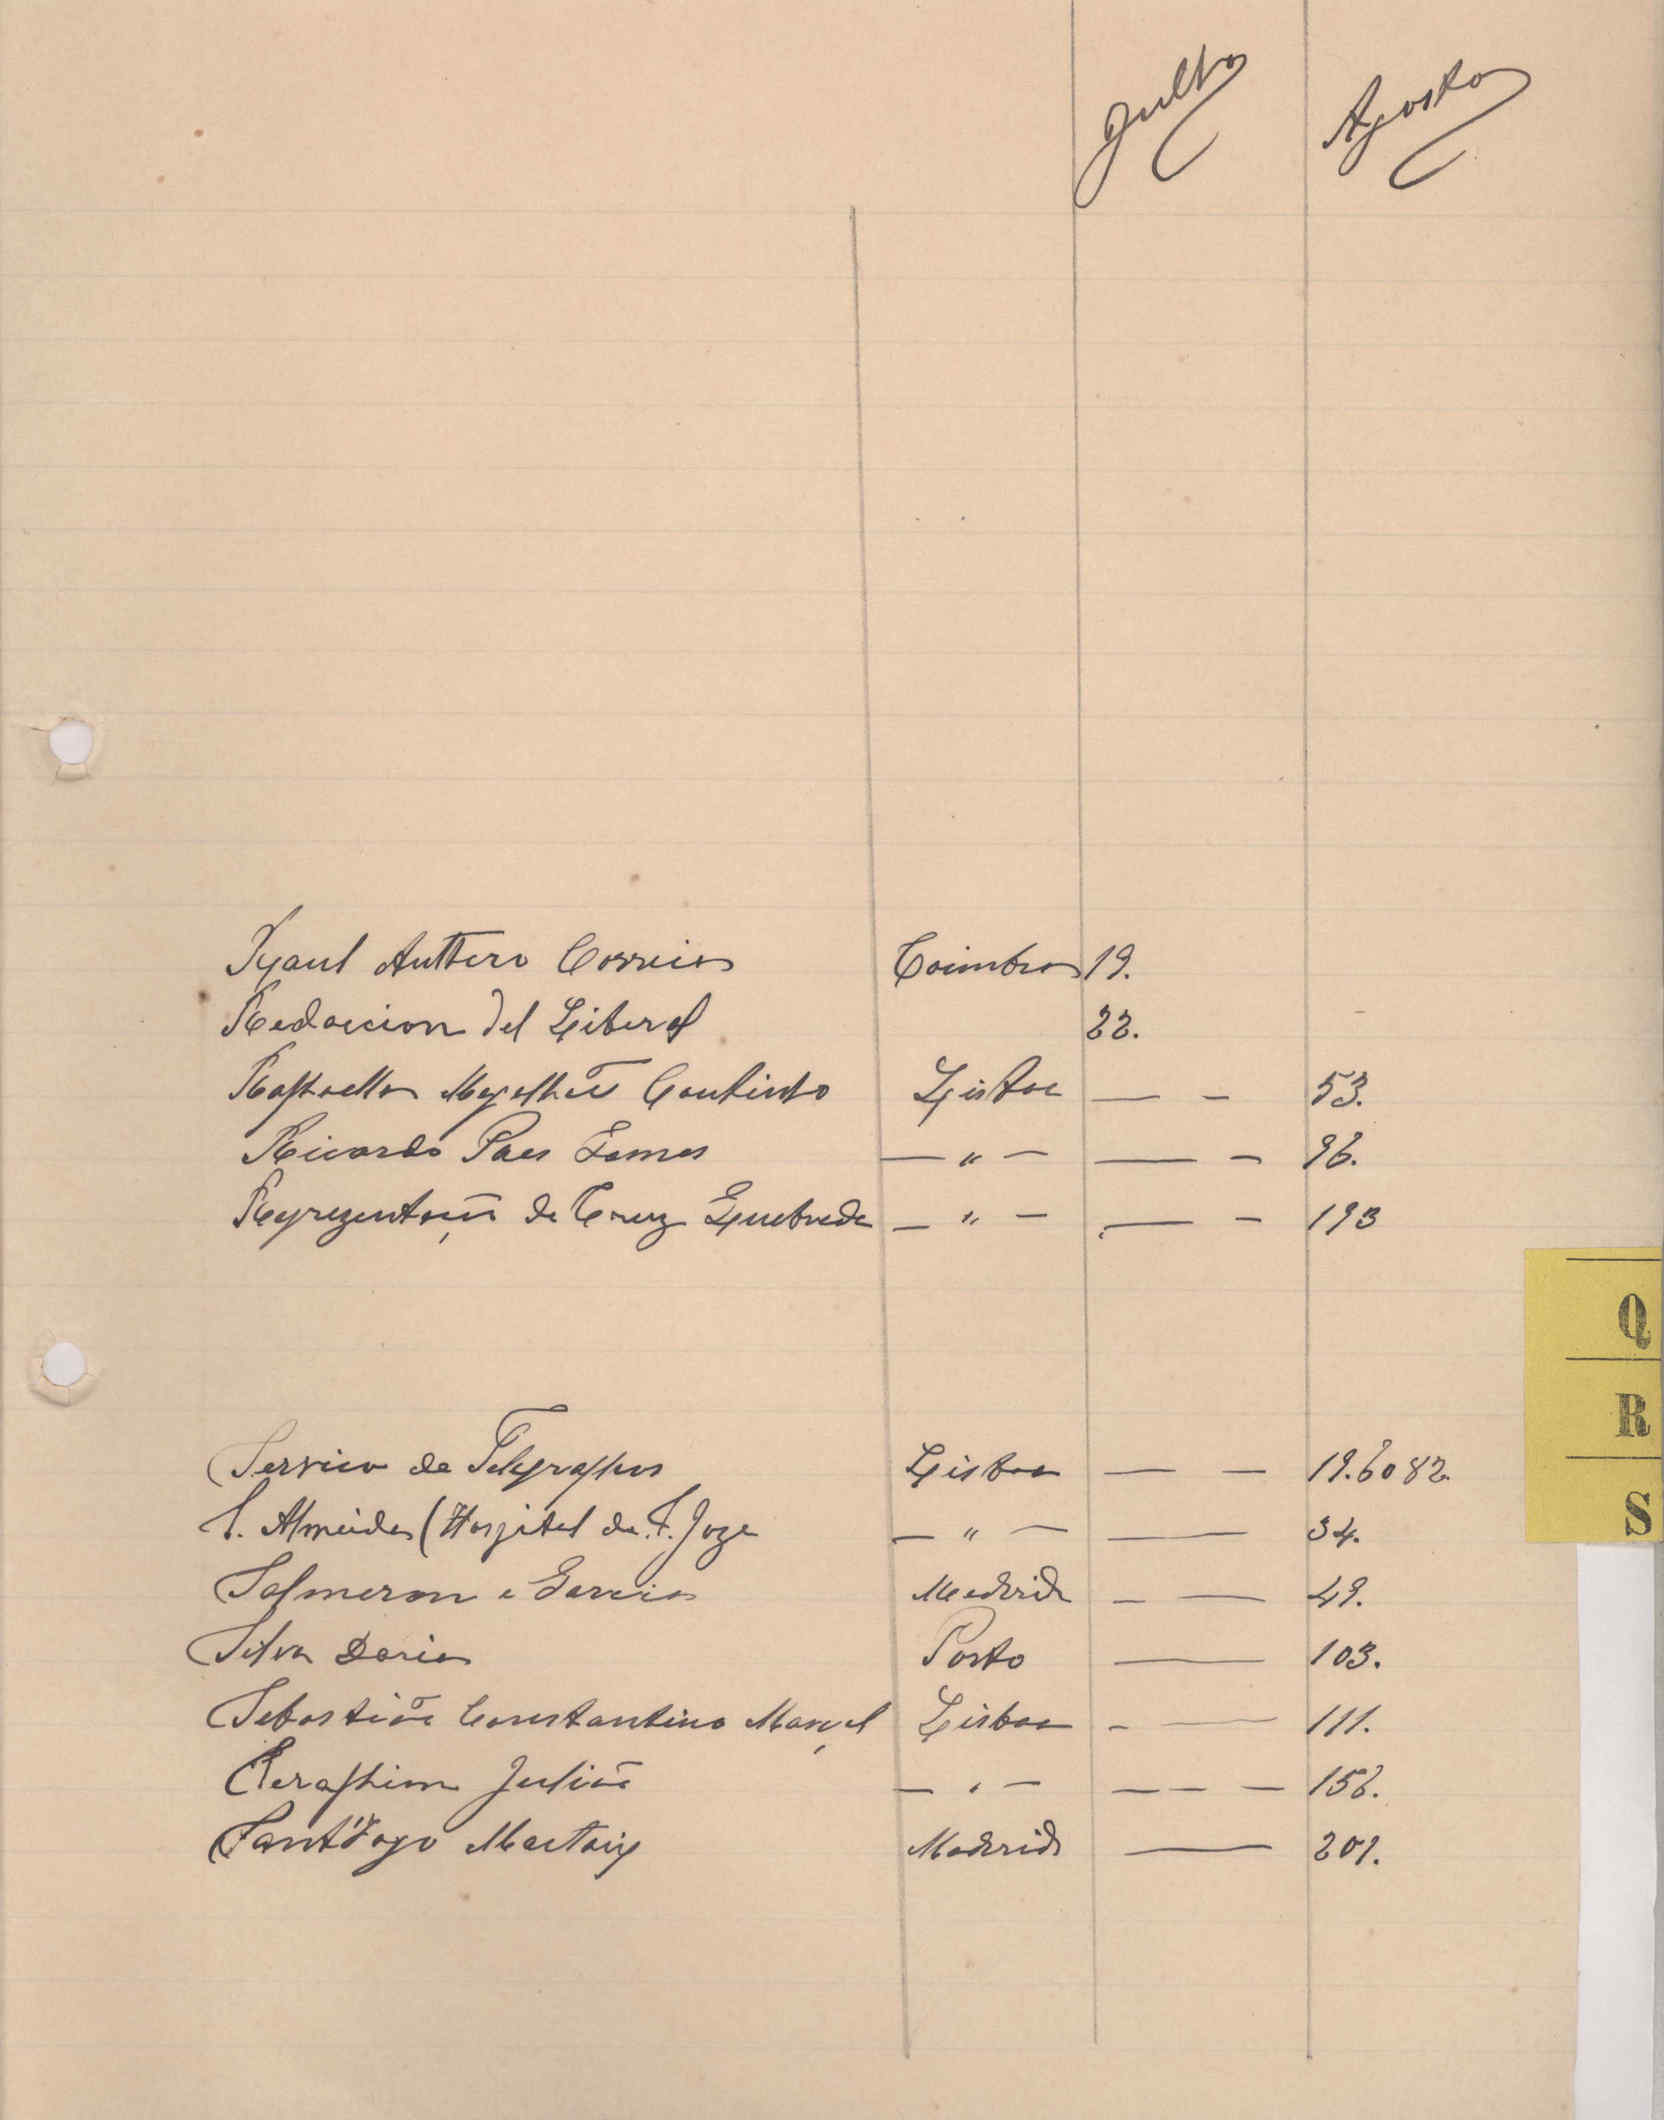 Julho Agosto
Raul Anthero Correia Coimbra 19.
Redaccion del Liberal 22.
Raphaello Magalhães Coutinho Lisboa — - 53.
Ricardo Paes Gomes — " — — - 96.
Reprezentação da Cruz Quebrada — " — — - 193
Q
R
Serviço de Telegraphos Lisboa — — 19. 60 82.
S
S. Almeida (Hospital de S. Joze — " — — 34.
Salmeron e Garcia Madrid - — 49.
Silva Doria Porto — 103.
Sebastião Constantino Marçal Lisboa - — 111.
Seraphim Julião — " — — — — 156.
Sant'Yago Madrid — 201.